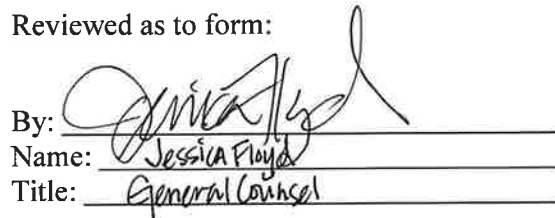 Reviewed as to form:
By: Jessica Floyd
Name: Jessica Floyd
Title: General Counsel